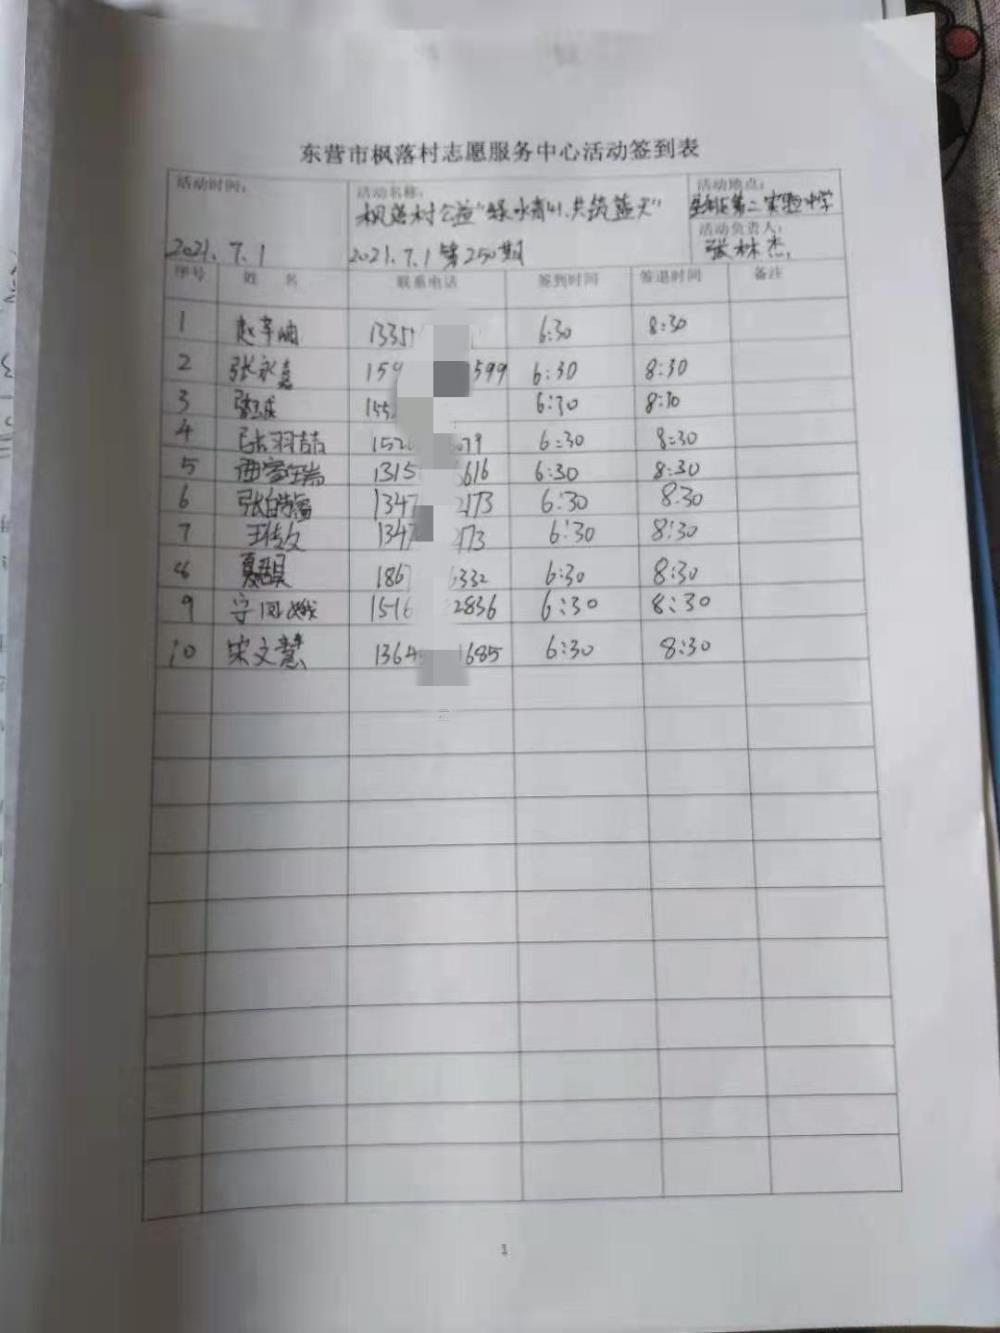 东营市枫落村志愿服务中心活动签到表
活动时间: 活动名称: 活动地点:
枫落村公益"绿水青山,共筑蓝天" 垦利区第二实验中学
活动负责人:
2021.7.1 2021.7.1 第250期 张林杰
序号 姓 名 联系电话 签到时间 签退时间 备注
1 1335 6:30 8:30
2 张永嘉 159 599 6:30 8:30
3 155 6:30 8:30
4 张羽喆 152 079 6:30 8:30
5 1315 616 6:30 8:30
6 1347 2173 6:30 8:30
7 1347 173 6:30 8:30
8 186 6332 6:30 8:30
9 1516 2836 6:30 8:30
10 宋文慧 1364 1685 6:30 8:30
1